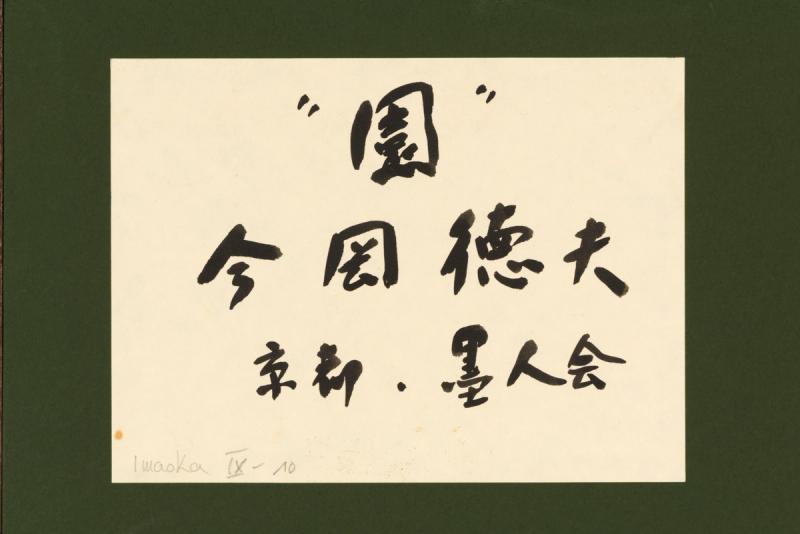 "園"
今岡徳夫
京都・墨人会
Imaoka IX-10